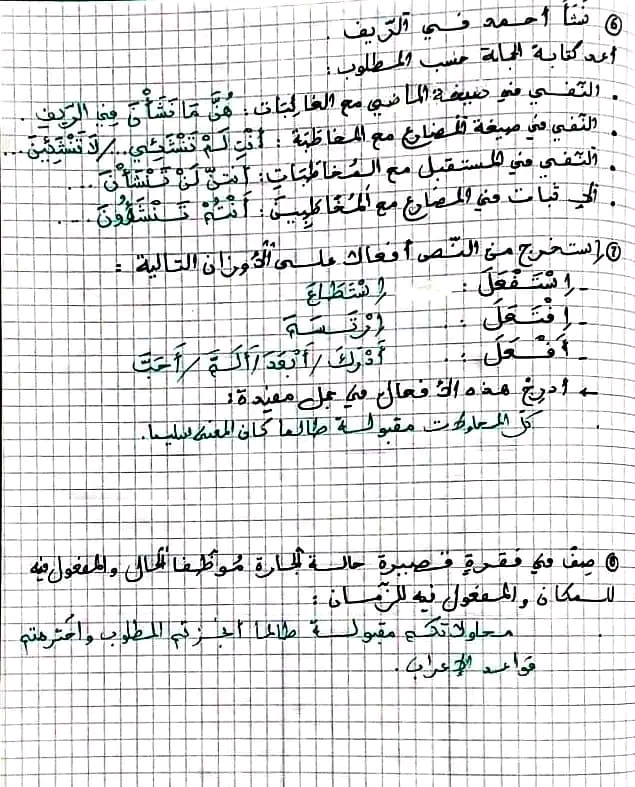 ⑥ نشأ أحمد في الرّيف .
أعد كتابة الجملة حسب المطلوب :
. النّفي في صيغة الماضي مع الغائبات : هُنَّ مَا نَشَأْنَ فِي الرِّيفِ .
. النّفي في صيغة المضارع مع المخاطَبَة : أَنْتِ لَمْ تَنْشَئِي../ لَا تَنْشَئِينَ...
. النّفي في المستقبل مع المُخاطَبَاتِ : أَنْتُنَّ لَنْ تَنْشَأْنَ ...
. الإثبات في المضارع مع المُخَاطَبِينَ : أَنْتُمْ تَنْشَؤُونَ ....
⑦ إستخرج من النّص أفعالا على الأوزان التالية :
- إِسْتَفْعَلَ : إِسْتَطَاعَ
- إِفْتَعَلَ : إِرْتَسَمَ
- أَفْعَلَ : أَدْرَكَ / أَبْعَدَ / أَلَمَّ / أَحَبَّ
← أدرج هذه الأفعال في جمل مفيدة :
كلّ المحاولات مقبولة طالما كان المعنى سليما.
⑧ صِفْ في فقرةٍ قصيرة حالة الجارة مُوَظِّفا الحال والمفعول فيه
للمكان والمفعول فيه للزّمان :
محاولاتكم مقبولة طالما أنجزتم المطلوب واحترمتم
قواعد الإعراب.